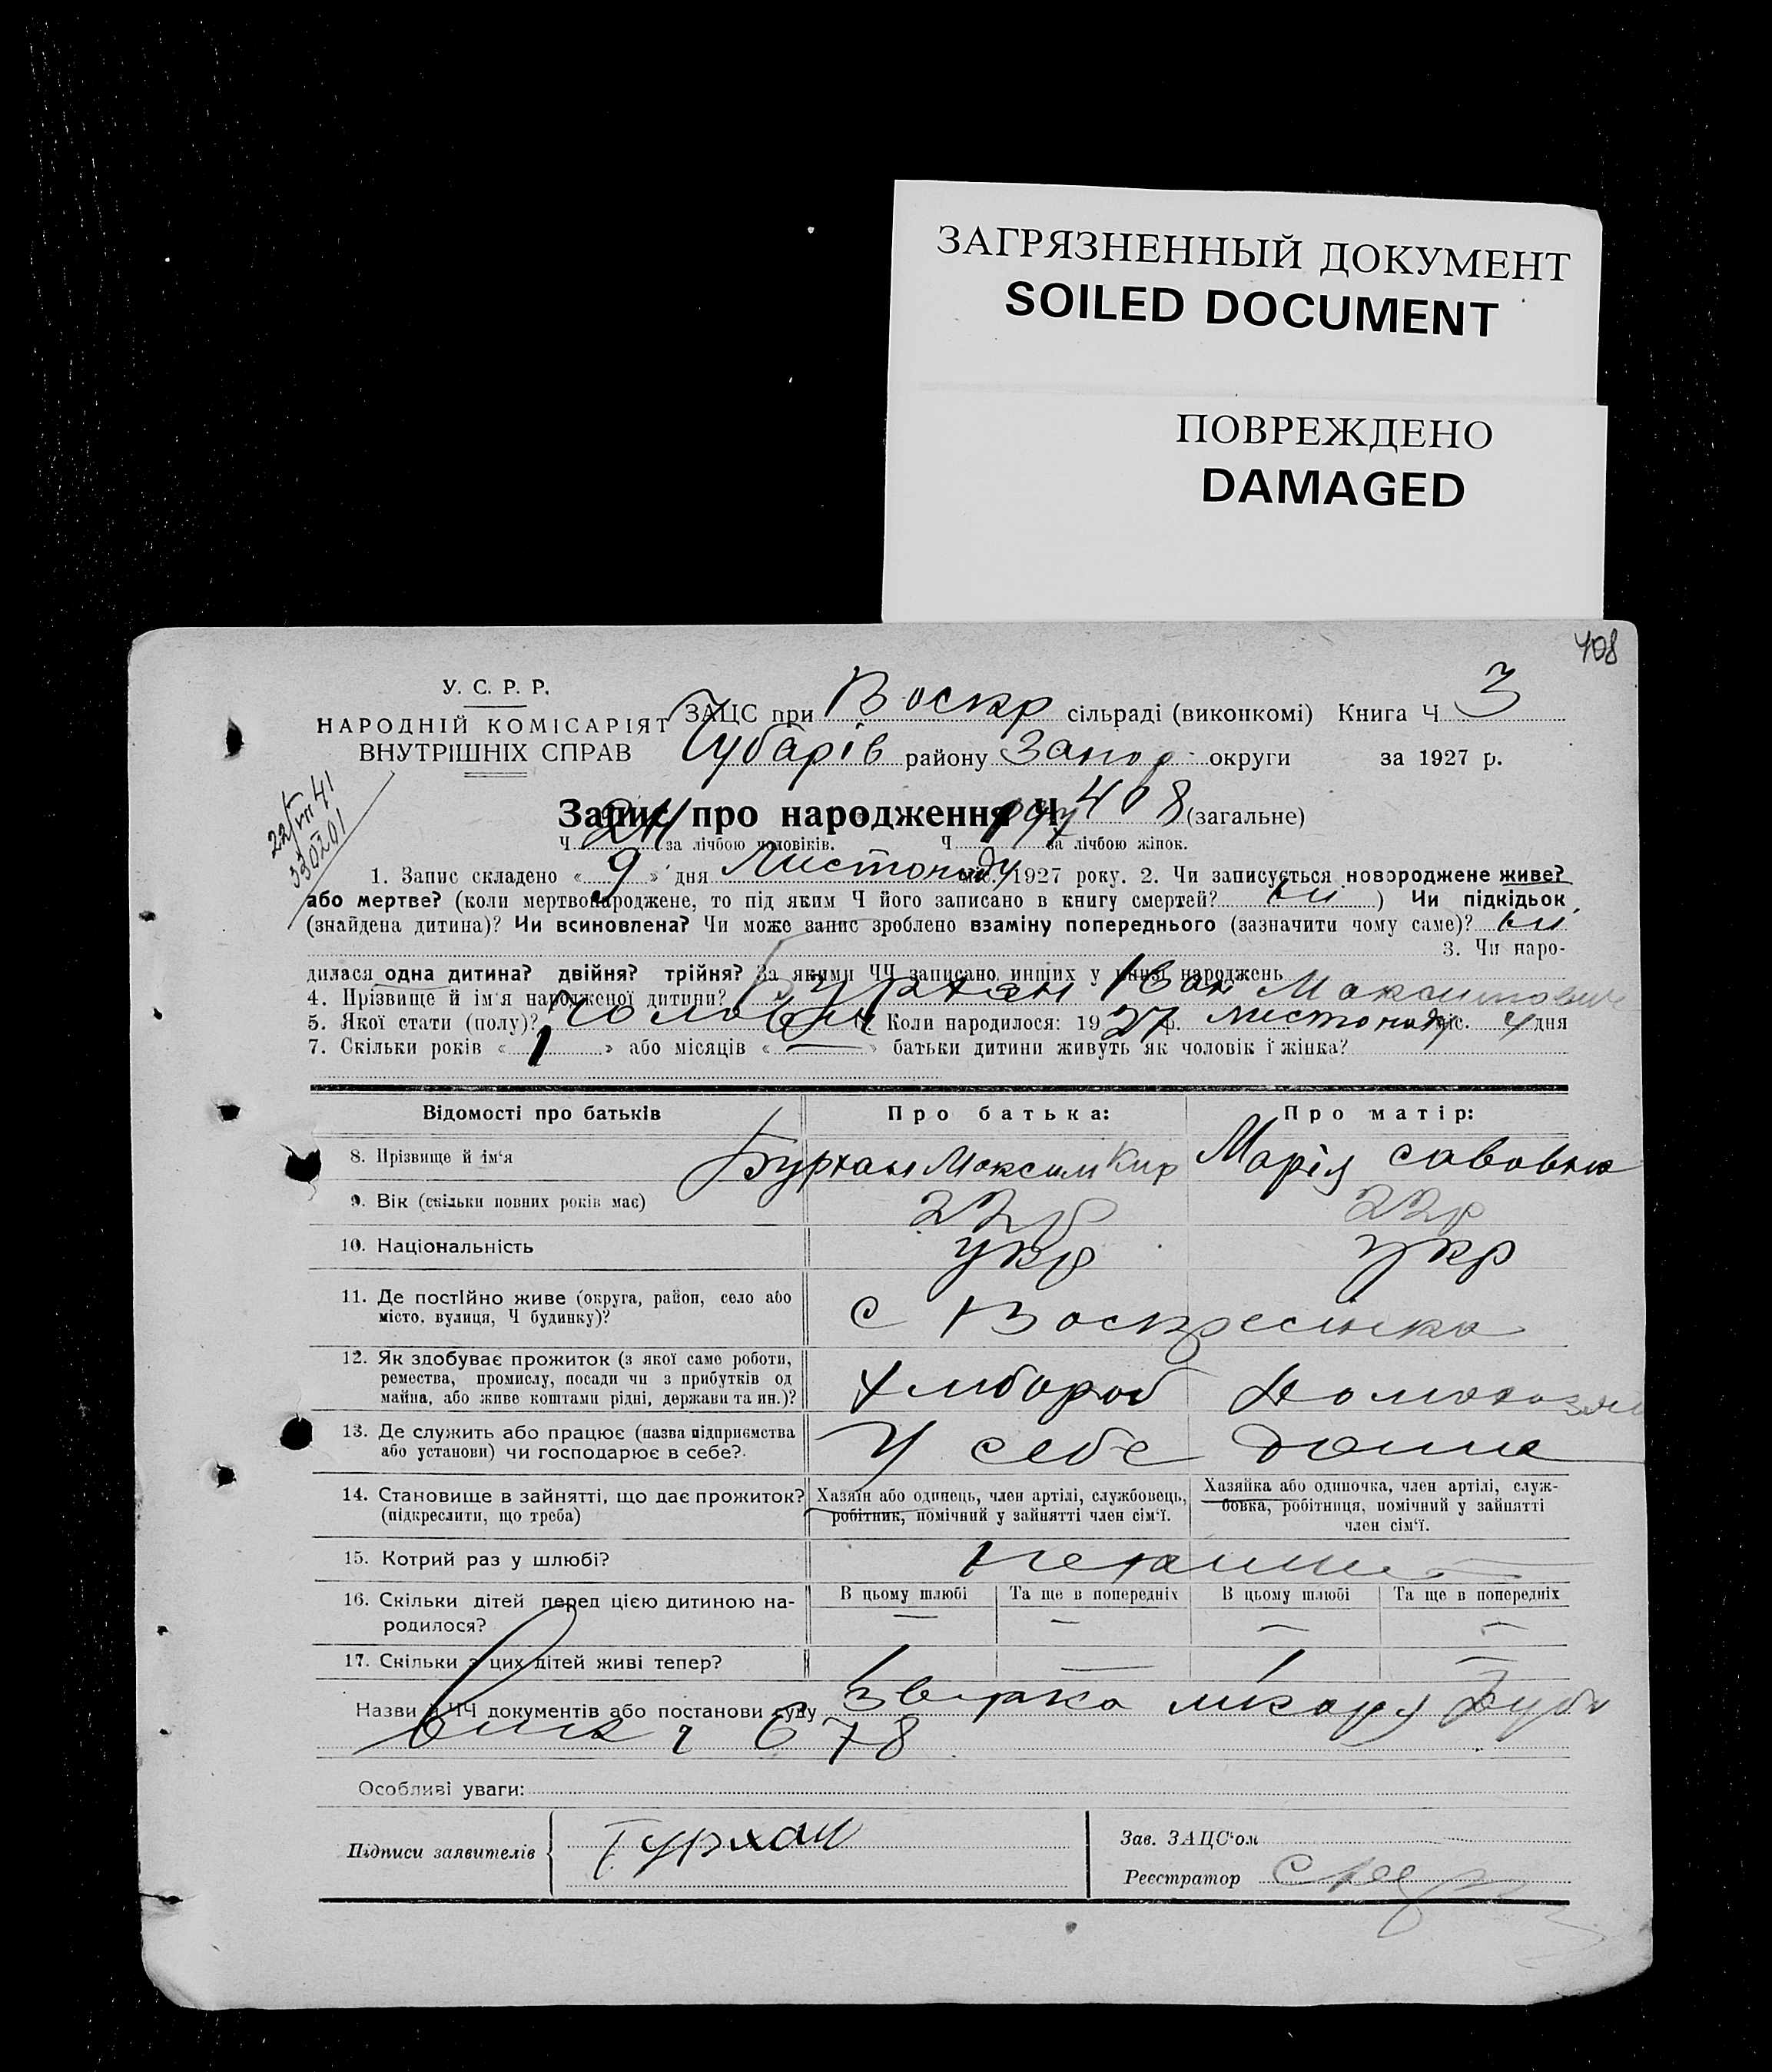 ЗАГРЯЗНЕННЫЙ ДОКУМЕНТ
SOILED DOCUMENT
ПОВРЕЖДЕНО
DAMAGED
408
У. С. Р. Р.
НАРОДНІЙ КОМІСАРІЯТ
ВНУТРІШНІХ СПРАВ
ЗАЦС при Воскр сільраді (виконкомі) Книга Ч 3
Чубарів району Запор округи за 1927 р.
Запис про народження Ч 408 (загальне)
Ч 211 за лічбою чоловіків. Ч 197 за лічбою жінок.
1. Запис складено « 9 » дня Листопаду міс. 1927 року. 2. Чи записується новороджене живе?
або мертве? (коли мертвонароджене, то під яким Ч його записано в книгу смертей? ) Чи підкідьок
(знайдена дитина)? Чи всиновлена? Чи може запис зроблено взаміну попереднього (зазначити чому саме)?
3. Чи наро-
дилася одна дитина? двійня? трійня? За якими ЧЧ записано инших у книзі народжень
4. Прізвище й ім'я народженої дитини? Бурхан Іван Максимович
5. Якої стати (полу)? Чоловіч 6. Коли народилося: 1927 р. листопаду міс. 4 дня
7. Скільки років « 1 » або місяців « — » батьки дитини живуть як чоловік і жінка?
Відомості про батьків Про батька: Про матір:
8. Прізвище й ім'я Бурхан Максим Кир Марія Савовна
9. Вік (скільки повних років має) 22 р 22 р
10. Національність укр укр
11. Де постійно живе (округа, район, село або
місто, вулиця, Ч будинку)? с Воскресінка
12. Як здобуває прожиток (з якої саме роботи,
ремества, промислу, посади чи з прибутків од
майна, або живе коштами рідні, держави та ин.)? Хлібороб Домохозяй
13. Де служить або працює (назва підприємства
або установи) чи господарює в себе? У себе дома
14. Становище в зайнятті, що дає прожиток?
(підкреслити, що треба)
Хазяїн або одинець, член артілі, службовець,
робітник, помічний у зайнятті член сім'ї.
Хазяйка або одиночка, член артілі, служ-
бовка, робітниця, помічний у зайнятті
член сім'ї.
15. Котрий раз у шлюбі?
16. Скільки дітей перед цією дитиною на-
родилося?
В цьому шлюбі Та ще в попередніх В цьому шлюбі Та ще в попередніх
— — — —
17. Скільки з цих дітей живі тепер? 1 — 1 —
Назви й ЧЧ документів або постанови суду
678
Особливі уваги:
Підписи заявителів Бурхан
Зав. ЗАЦС'ом
Реєстратор